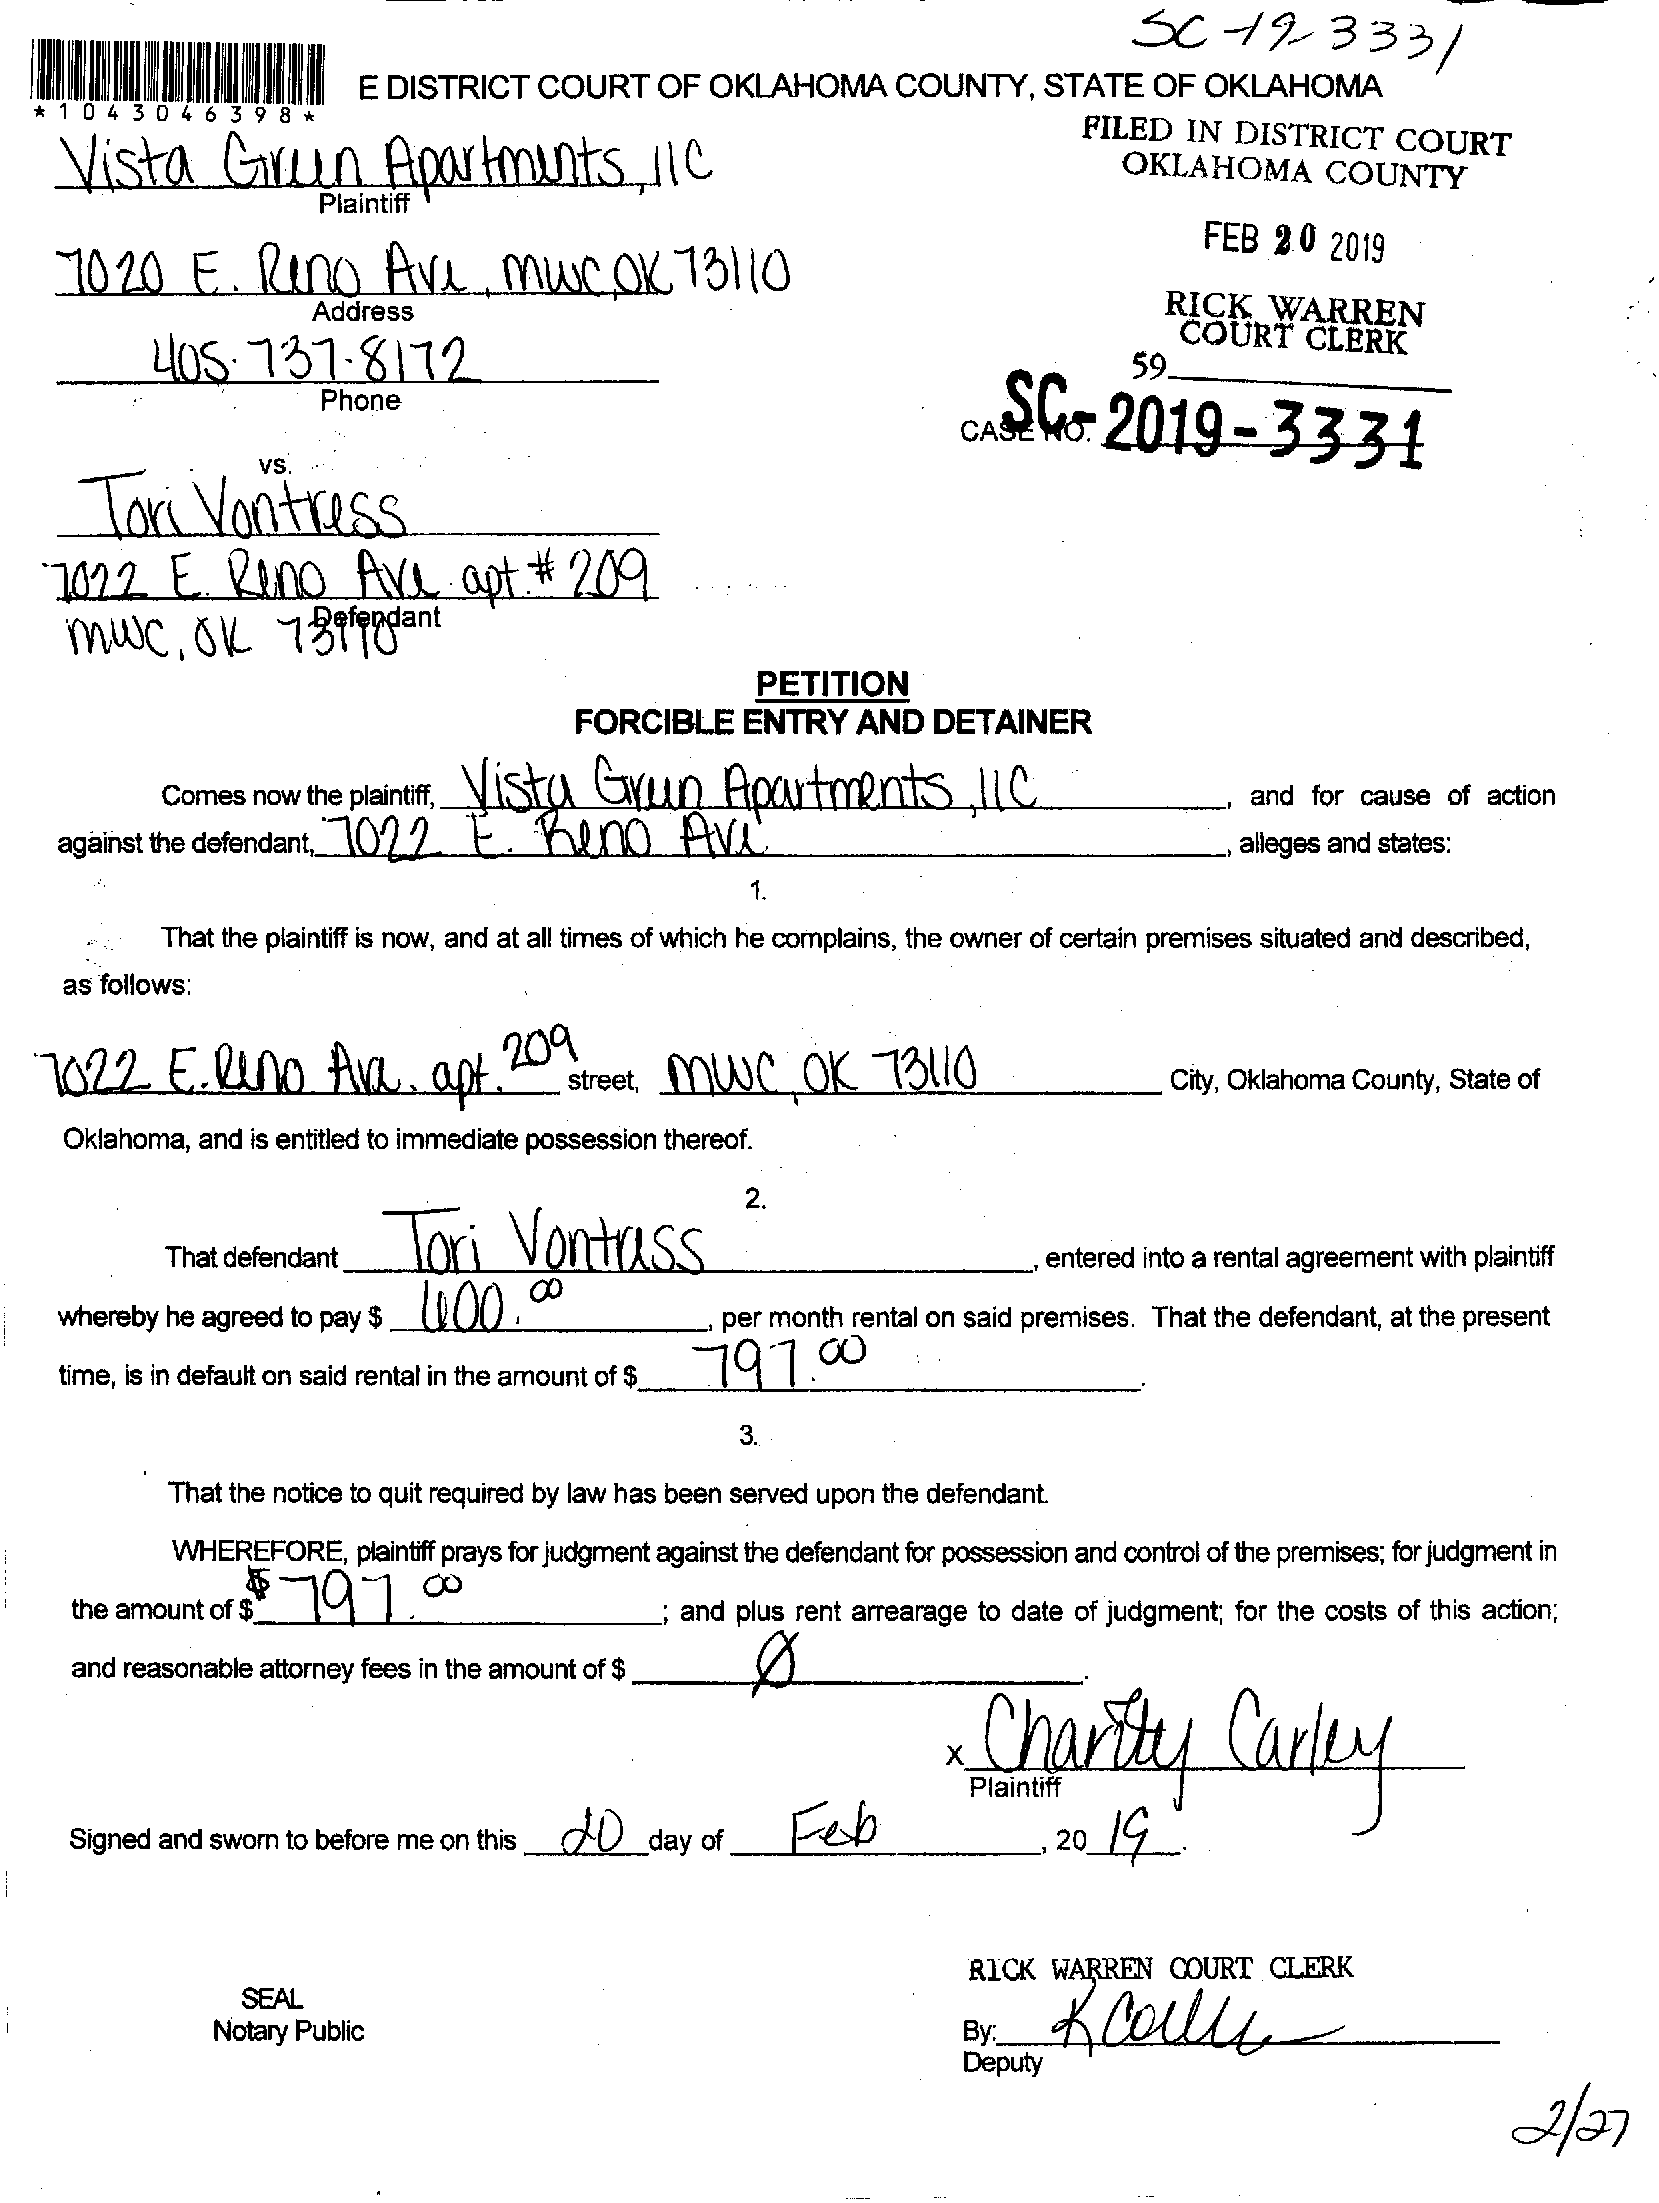 SC-19-3331
*1043046398*
E DISTRICT COURT OF OKLAHOMA COUNTY, STATE OF OKLAHOMA
FILED IN DISTRICT COURT
OKLAHOMA COUNTY
Vista Green Apartments, llC
Plaintiff
FEB 20 2019
7020 E. Reno Ave, MWC OK 73110
Address
RICK WARREN
COURT CLERK
405-737-8172
Phone
59
CASE NO. SC-2019-3331
vs.
Tori Vontress
7022 E. Reno Ave apt. # 209
Defendant
MWC, OK 73110
PETITION
FORCIBLE ENTRY AND DETAINER
Comes now the plaintiff, Vista Green Apartments, llC, and for cause of action
against the defendant, 7022 E. Reno Ave, alleges and states:
1.
That the plaintiff is now, and at all times of which he complains, the owner of certain premises situated and described,
as follows:
7022 E. Reno Ave. apt. 209 street, MWC, OK 73110 City, Oklahoma County, State of
Oklahoma, and is entitled to immediate possession thereof.
2.
That defendant Tori Vontress, entered into a rental agreement with plaintiff
whereby he agreed to pay $ 600.00, per month rental on said premises. That the defendant, at the present
time, is in default on said rental in the amount of $ 797.00.
3.
That the notice to quit required by law has been served upon the defendant.
WHEREFORE, plaintiff prays for judgment against the defendant for possession and control of the premises; for judgment in
the amount of $ $797.00; and plus rent arrearage to date of judgment; for the costs of this action;
and reasonable attorney fees in the amount of $ Ø.
x Charity Carley
Plaintiff
Signed and sworn to before me on this 20 day of Feb, 20 19.
RICK WARREN COURT CLERK
SEAL
Notary Public
By:
Deputy
2/27